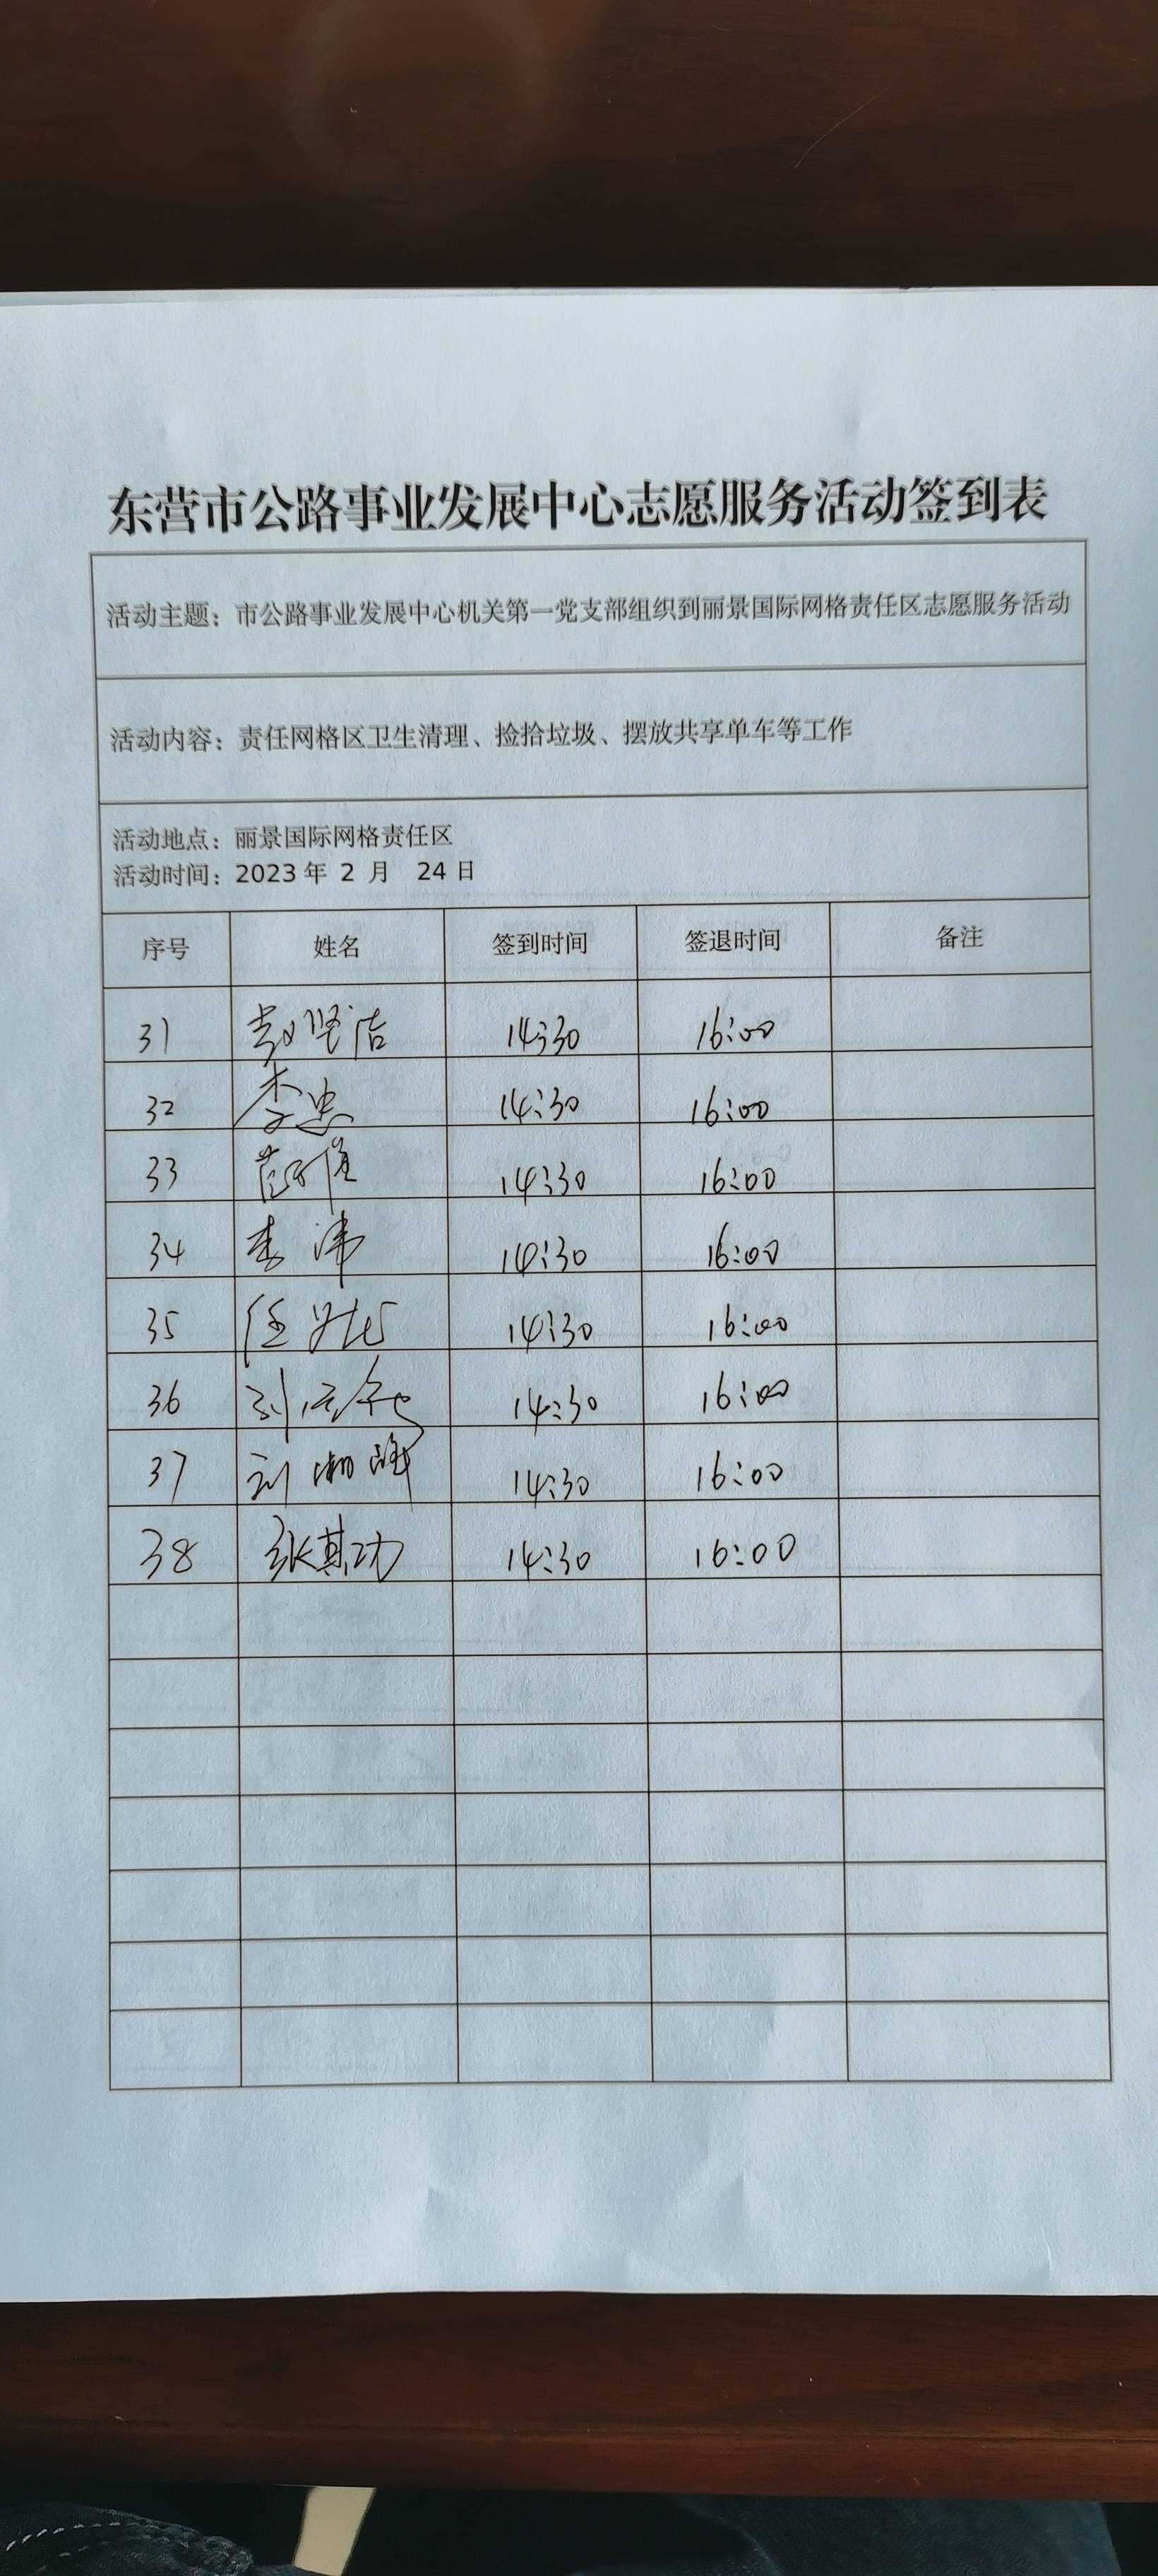 东营市公路事业发展中心志愿服务活动签到表
活动主题：市公路事业发展中心机关第一党支部组织到丽景国际网格责任区志愿服务活动
活动内容：责任网格区卫生清理、捡拾垃圾、摆放共享单车等工作
活动地点：丽景国际网格责任区
活动时间：2023年 2 月 24日
序号 姓名 签到时间 签退时间 备注
31 14:30 16:00
32 李忠 14:30 16:00
33 14:30 16:00
34 李 沛 14:30 16:00
35 任 14:30 16:00
36 刘 14:30 16:00
37 刘湘 14:30 16:00
38 张其功 14:30 16:00